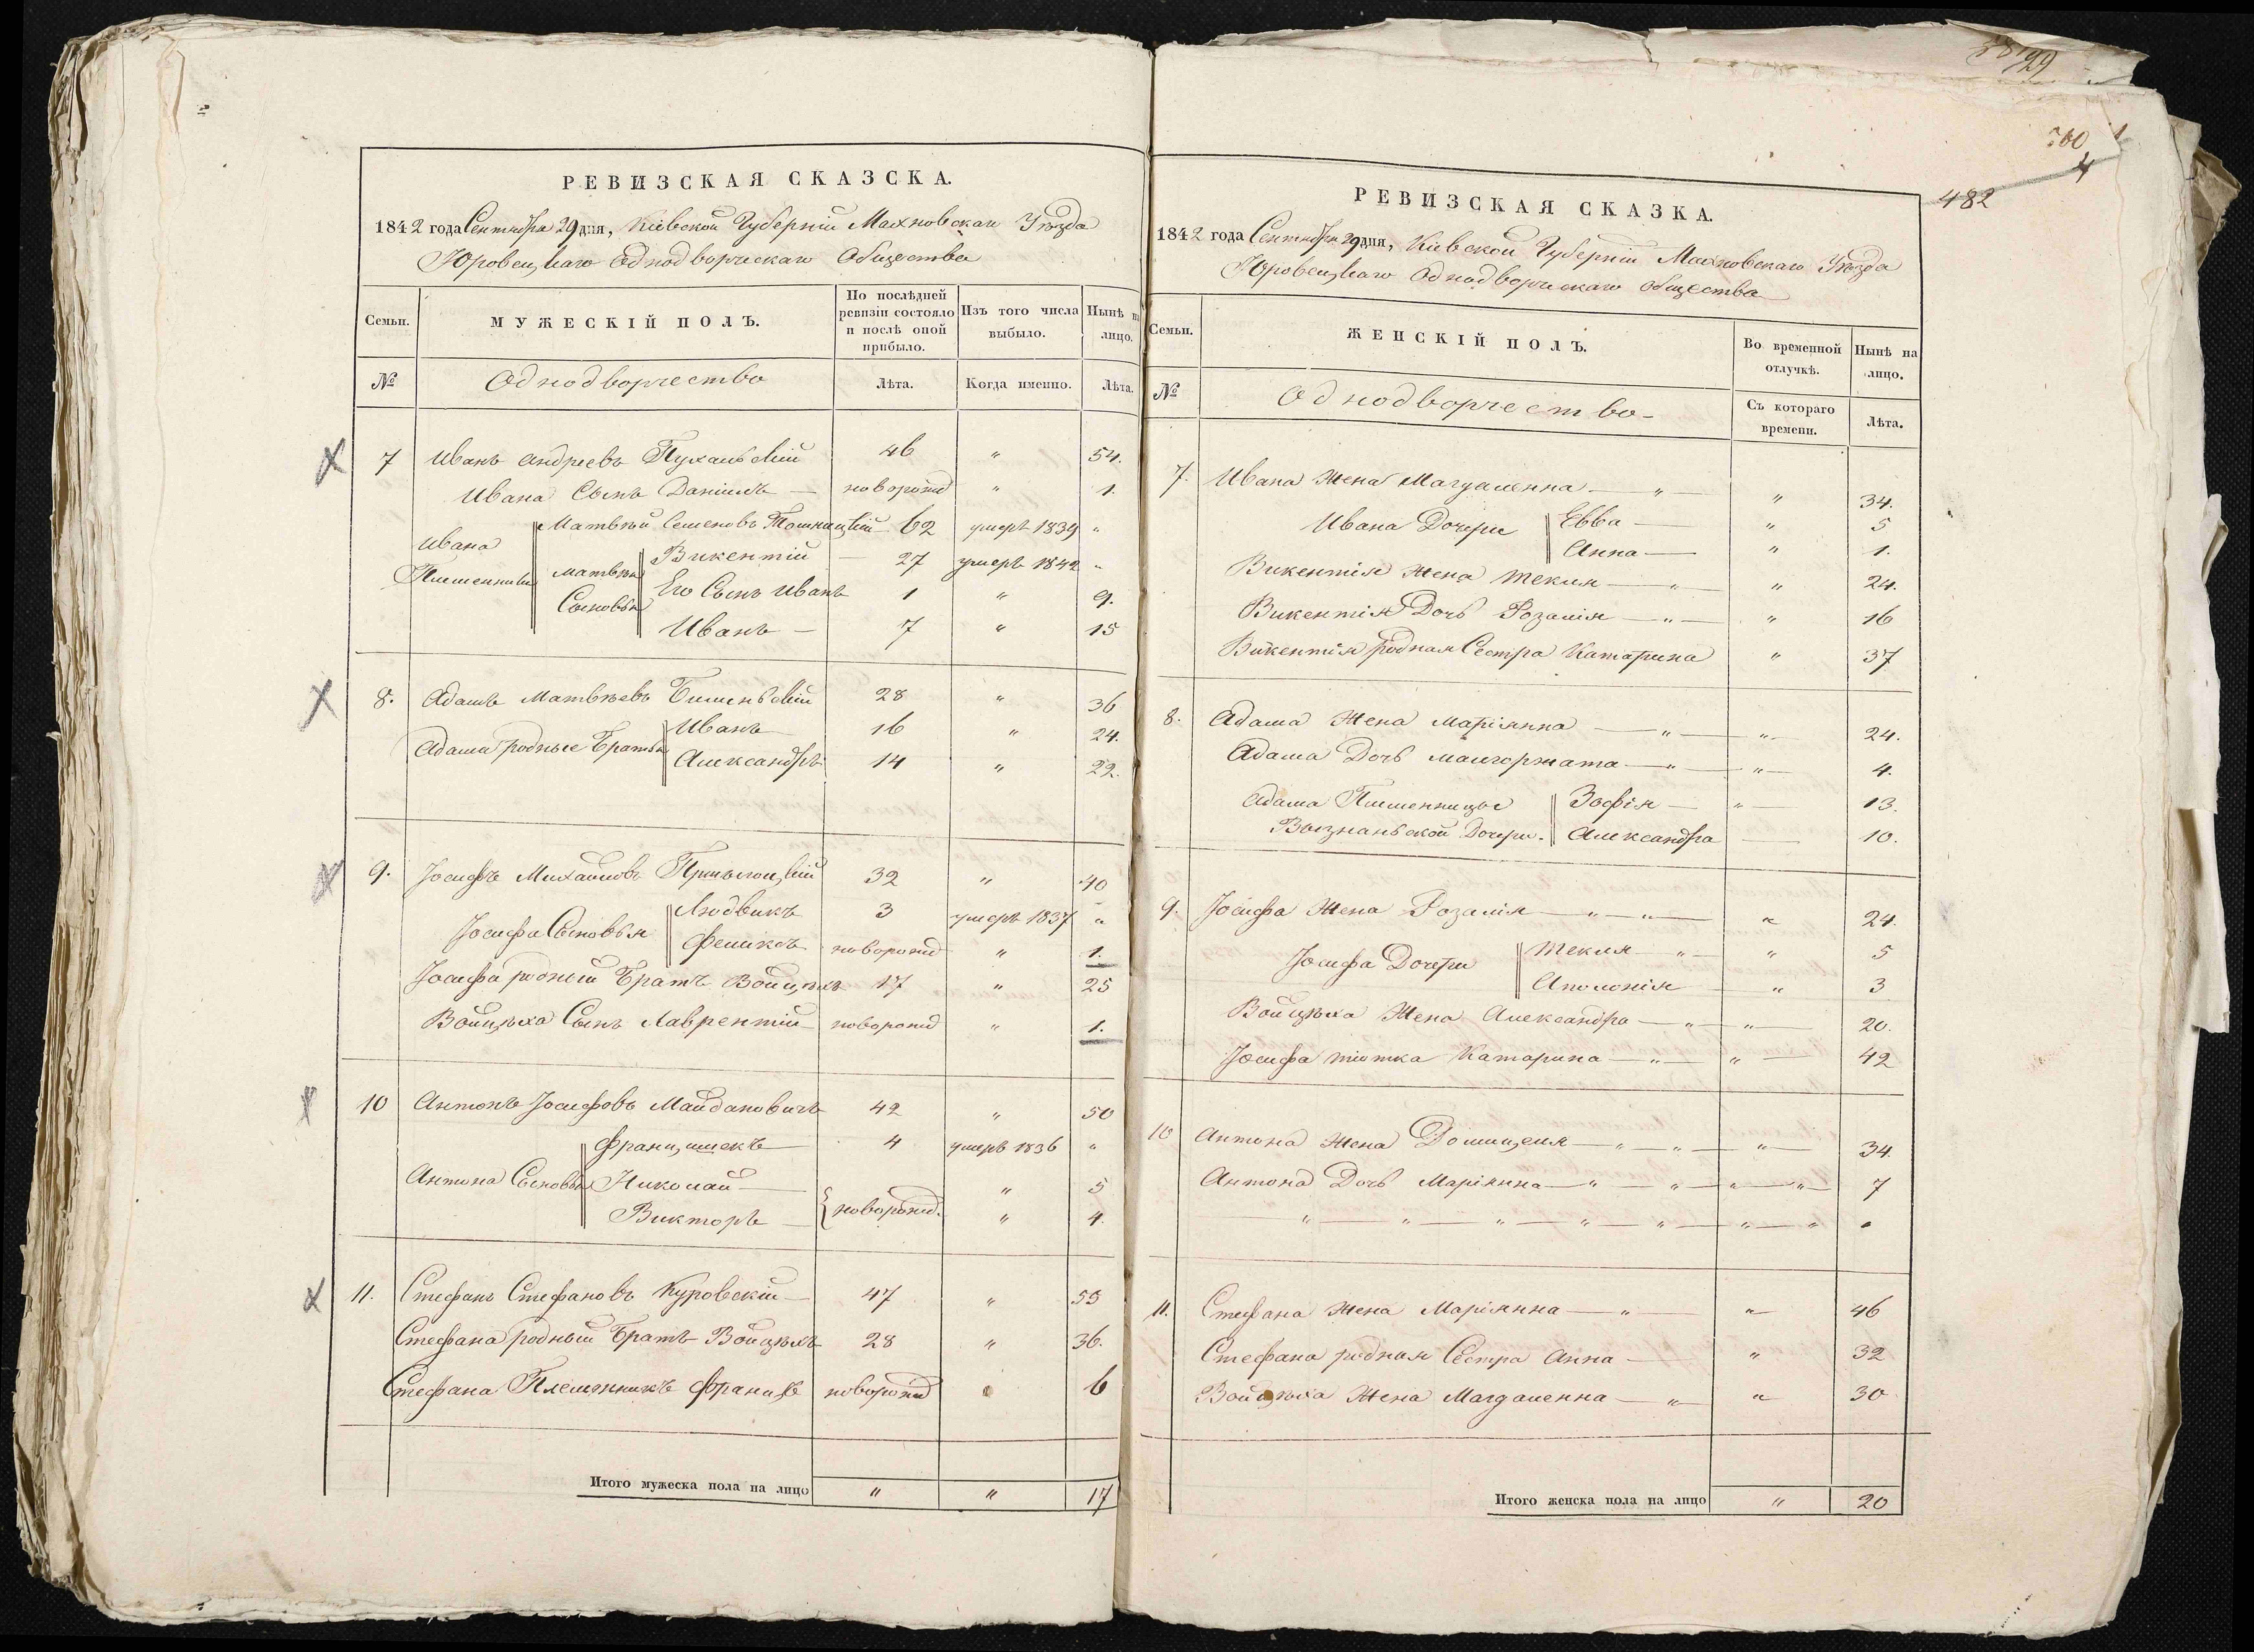 РЕВИЗСКАЯ СКАЗСКА.
1842 года Сентября 29 дня, Кіевской Губерніи Махновскаго Уѣзда
Юровецкаго Однодворческаго Общества
Семьи.
МУЖЕСКІЙ ПОЛЪ.
По послѣдней ревизіи состояло и послѣ оной прибыло.
Изъ того числа выбыло.
Нынѣ на лицо.
№
Однодворчество
Лѣта.
Когда именно.
Лѣта.
7 Иванъ Андреевъ 46 " 54.
Ивана Сынъ Даніилъ — новорожд " 1.
Матвѣй Семеновъ 62 умеръ 1839 "
Ивана Племенники Матвѣя Сыновья Викентій — 27 умеръ 1842 "
Его Сынъ Иванъ 1 " 9.
Иванъ — 7 " 15
8. Адамъ Матвѣевъ 28 " 36
Адама родные Братья Иванъ 16 " 24.
Александръ 14 " 22.
9. Іосифъ Михайловъ 32 " 40
Іосифа Сыновья Людвикъ 3 умеръ 1837 "
Феликсъ новорожд " 1.
Іосифа родный Братъ Войцѣхъ 17 " 25
Войцѣха Сынъ Лаврентій новорожд " 1.
10 Антонъ Іосифовъ Майдановичъ 42 " 50
Францишекъ 4 умеръ 1836 "
Антона Сыновья Николай " 5
Викторъ — новорожд. " 4
11. Стефанъ Стефановъ Куровскій 47 " 55
Стефана родный Братъ Войцѣхъ 28 " 36.
Стефана Племянникъ Францъ новорожд 6
Итого мужеска пола на лицо " " 17
482
РЕВИЗСКАЯ СКАЗКА.
1842 года Сентября 29 дня, Кіевской Губерніи Махновскаго Уѣзда
Юровецкаго Однодворческаго Общества
Семьи.
ЖЕНСКІЙ ПОЛЪ.
Во временной отлучкѣ.
Нынѣ на лицо.
№
Однодворчество-
Съ котораго времени.
Лѣта.
7. Ивана Жена Магдаленна — " — " 34.
Ивана Дочери Евва — " 5
Анна — " 1.
Викентія Жена Текля — " — " 24.
Викентія Дочь Розалія — " — " 16
Викентія родная Сестра Катарина " 37
8. Адама Жена Маріянна — " — " 24.
Адама Дочь Малгоржата — " — " — 4.
Адама Племенницы Зофія — " — 13.
Дочери. Александра — 10.
9. Іосифа Жена Розалія — " — " — " 24.
Іосифа Дочери Текля — " — " 5
Аполонія " 3
Войцѣха Жена Александра — " — " — 20.
Іосифа тіотка Катарина — " — " — 42
10 Антона Жена Домицеля — " — " — " — 34.
Антона Дочь Маріянна — " — " — " — " — 7
— " — " — " — " — " — " — "
11. Стефана Жена Маріянна — " " 46
Стефана родная Сестра Анна — " 32
Войцѣха Жена Магдаленна — " — " 30
Итого женска пола на лицо " 20